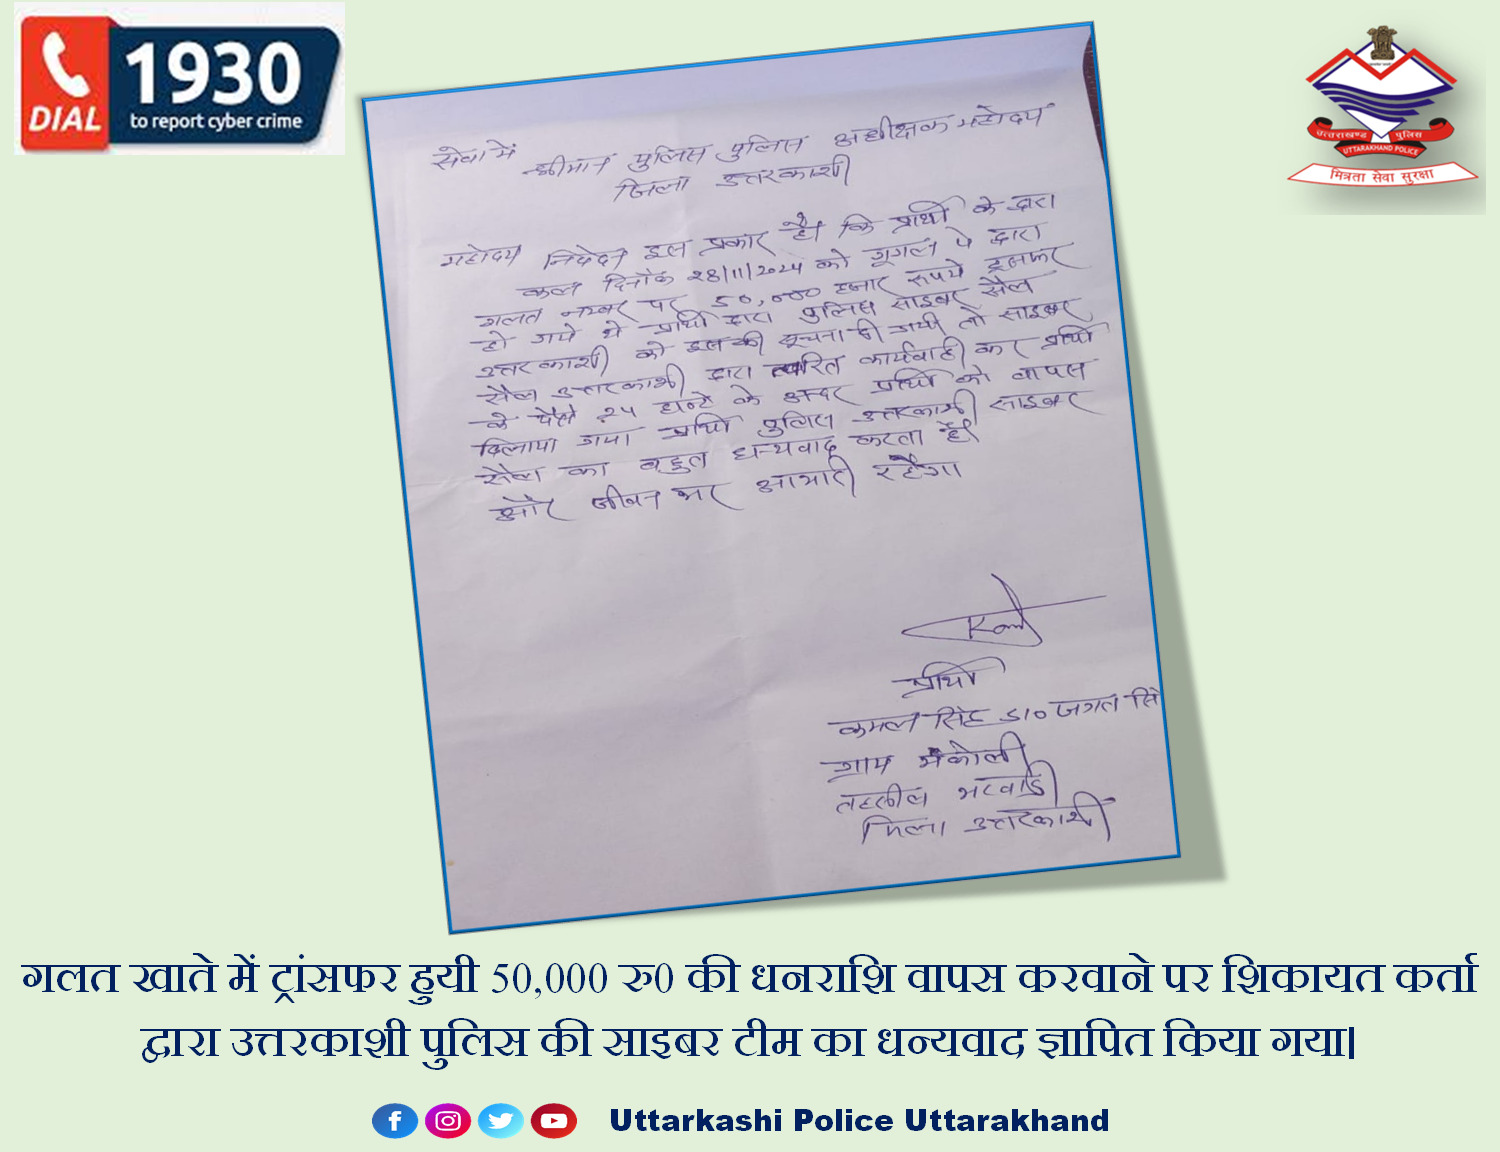 DIAL
1930
to report cyber crime
उत्तराखण्ड पुलिस
UTTARAKHAND POLICE
मित्रता सेवा सुरक्षा
सेवा में
श्रीमान पुलिस पुलिस अधीक्षक महोदय
जिला उत्तरकाशी
महोदय निवेदन इस प्रकार है। कि प्रार्थी के द्वारा
कल दिनाँक 28/11/2024 को गूगल पे द्वारा
गलत नम्बर पर 50,000 हजार रूपये ट्रांसफर
हो गये थे प्रार्थी द्वारा पुलिस साइबर सैल
उत्तरकाशी को इसकी सूचना दी गयी तो साइबर
सैल उत्तरकाशी द्वारा त्वरित कार्यवाही कर प्रार्थी
के पैसे 24 घन्टे के अन्दर प्रार्थी को वापस
दिलाया गया प्रार्थी पुलिस उत्तरकाशी साइबर
सैल का बहुत धन्यवाद करता है।
और जीवन भर आभारी रहेगा
प्रार्थी
कमल सिंह S/० जगत सिं
ग्राम भंकोली
तहसील भटवाड़ी
जिला उत्तरकाशी
गलत खाते में ट्रांसफर हुयी 50,000 रु0 की धनराशि वापस करवाने पर शिकायत कर्ता
द्वारा उत्तरकाशी पुलिस की साइबर टीम का धन्यवाद ज्ञापित किया गया।
Uttarkashi Police Uttarakhand